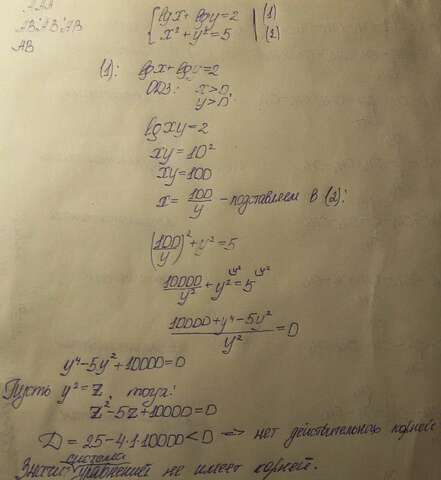 AAA
AB'AB'AB
AB
{ lgx + lgy = 2 | (1)
x² + y² = 5 | (2)
(1): lgx + lgy = 2
ОДЗ: x>0,
y>0.
lgxy = 2
xy = 10²
xy = 100
x = 100/y - подставляем в (2):
(100/y)² + y² = 5
10000/y² + y² = 5
(10000 + y⁴ - 5y²)/y² = 0
y⁴ - 5y² + 10000 = 0
Пусть y² = z, тогда:
z² - 5z + 10000 = 0
D = 25 - 4·1·10000 < 0 => нет действительных корней
Значит система уравнений не имеет корней.